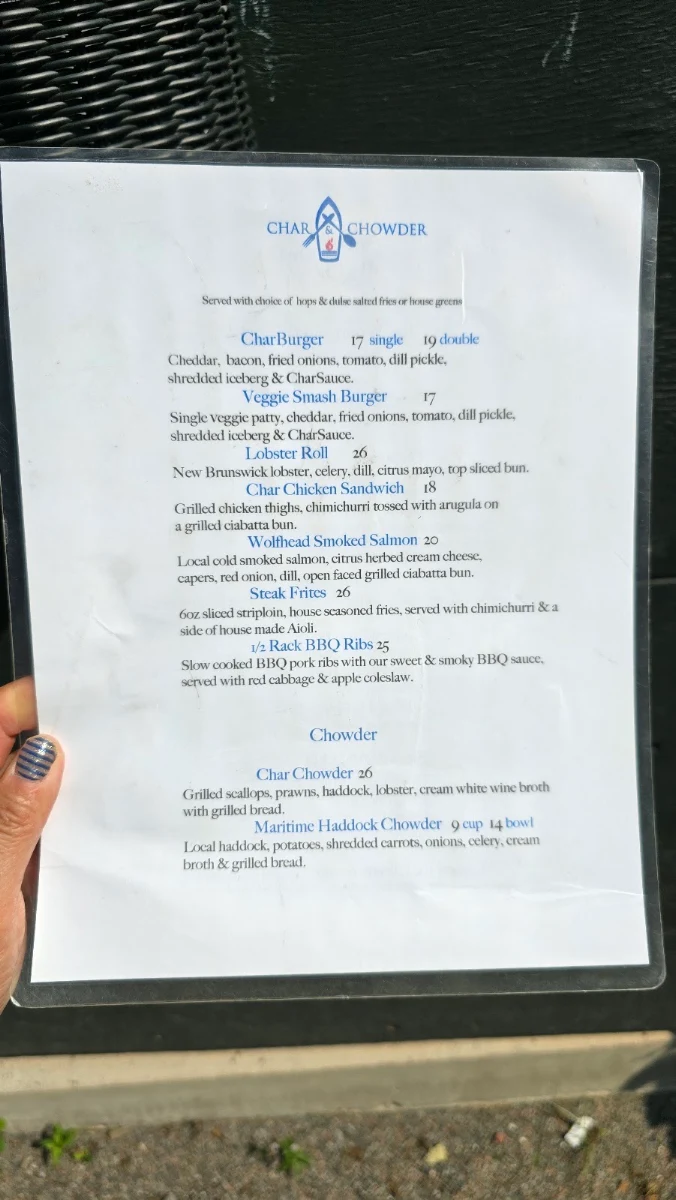 CHAR & CHOWDER
Served with choice of hops & dulse salted fries or house greens
CharBurger 17 single 19 double
Cheddar, bacon, fried onions, tomato, dill pickle,
shredded iceberg & CharSauce.
Veggie Smash Burger 17
Single veggie patty, cheddar, fried onions, tomato, dill pickle,
shredded iceberg & CharSauce.
Lobster Roll 26
New Brunswick lobster, celery, dill, citrus mayo, top sliced bun.
Char Chicken Sandwich 18
Grilled chicken thighs, chimichurri tossed with arugula on
a grilled ciabatta bun.
Wolfhead Smoked Salmon 20
Local cold smoked salmon, citrus herbed cream cheese,
capers, red onion, dill, open faced grilled ciabatta bun.
Steak Frites 26
6oz sliced striploin, house seasoned fries, served with chimichurri & a
side of house made Aioli.
1/2 Rack BBQ Ribs 25
Slow cooked BBQ pork ribs with our sweet & smoky BBQ sauce,
served with red cabbage & apple coleslaw.
Chowder
Char Chowder 26
Grilled scallops, prawns, haddock, lobster, cream white wine broth
with grilled bread.
Maritime Haddock Chowder 9 cup 14 bowl
Local haddock, potatoes, shredded carrots, onions, celery, cream
broth & grilled bread.